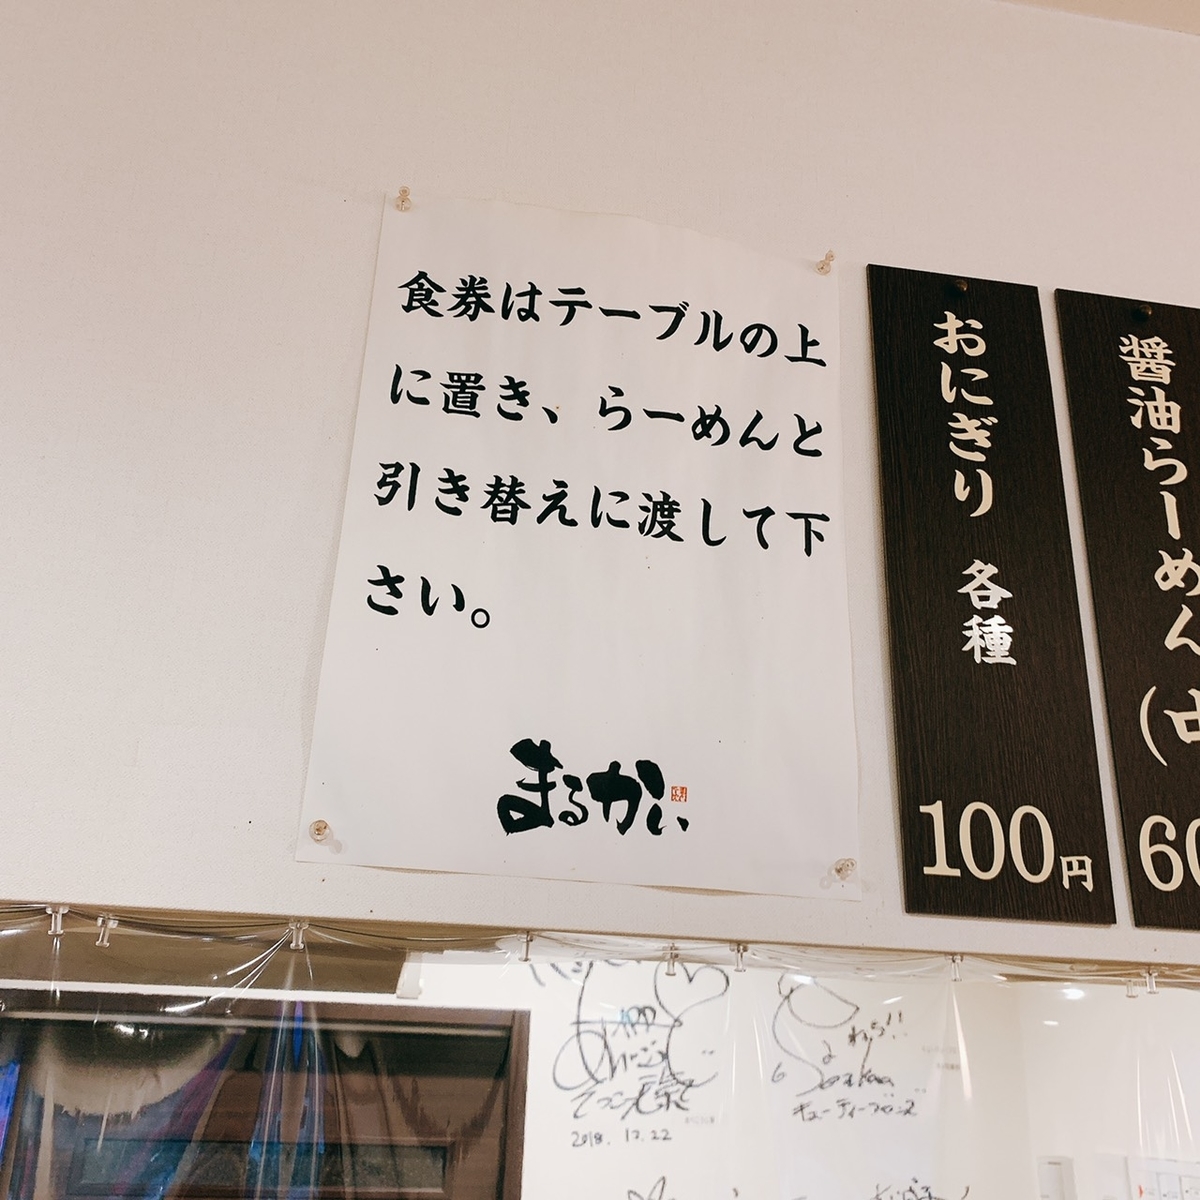 食券はテーブルの上
に置き、らーめんと
引き替えに渡して下
さい。
まるかい
おにぎり 各種
100円
醤油らーめん
2018.12.22
キューティーブロンズ